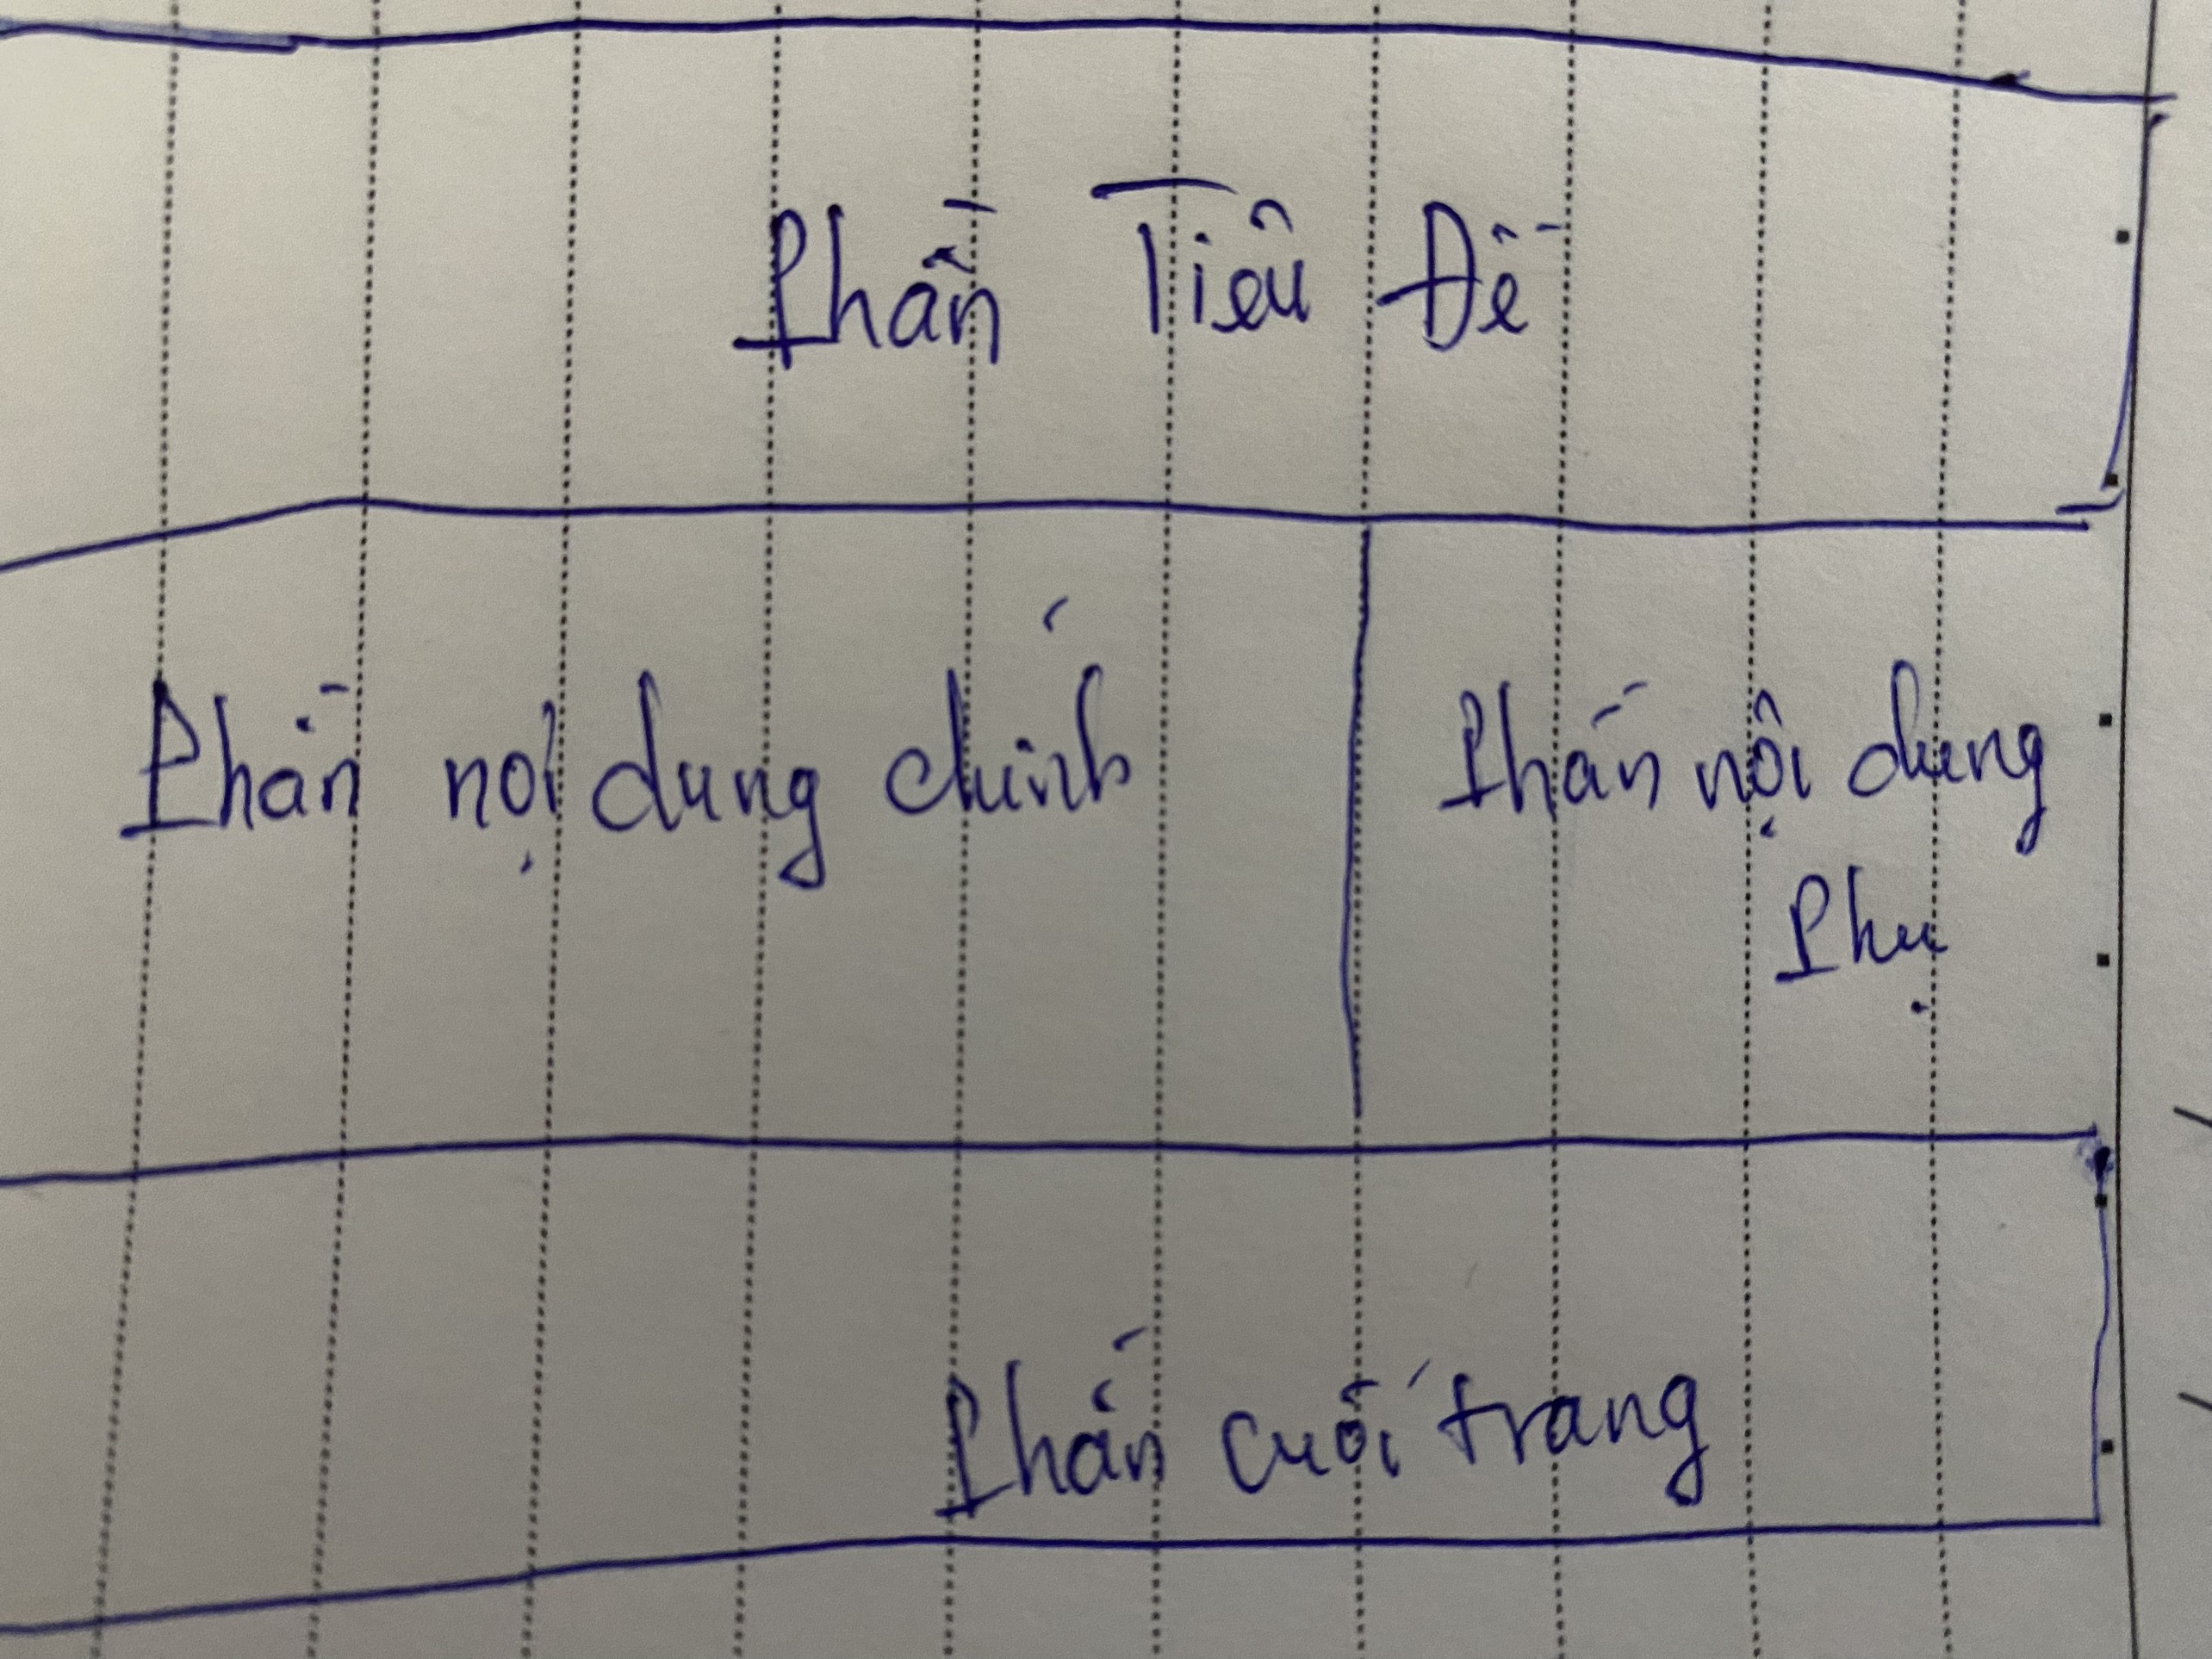 Phần Tiêu Đề
Phần nội dung chính
Phần nội dung
Phụ
Phần cuối trang